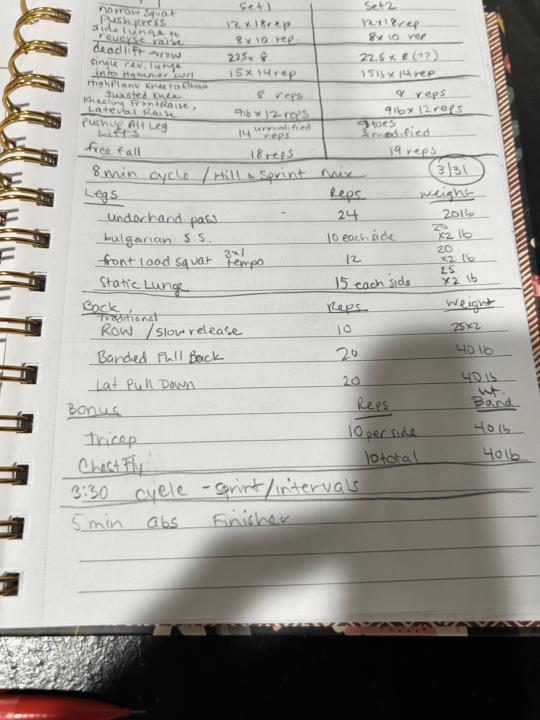 Set 1 Set 2
narrow Squat
Push press 12x18rep 12x18rep
side lunge to
reverse raise 8x10 rep. 8x10 rep
deadlift → row 22.5x8 22.5x8 (??)
single rev. lunge
into Hammer curl 15x14rep 15lbx14rep
High Plank Knee to Elbow
twisted knee 8 reps 8 reps
Kneeling Front Raise,
Lateral Raise 9lbx12reps 9lbx12reps
Pushup Alt Leg
Lifts 14 unmodified reps toes modified
free fall 18reps 19reps
8min cycle / Hill & Sprint mix 3/31
Legs Reps weight
underhand pass 24 20lb
bulgarian S.S. 10 each side 20 x2 lb
front load squat 3x1 tempo 12 20 x2 lb
Static Lunge 15 each side 25 x2 lb
Back Reps Weight
Traditional
Row / slow release 10 25x2
Banded Pull Back 20 40lb
Lat Pull Down 20 40lb
Bonus Reps wt. Band
tricep 10 per side 40lb
Chest Fly 10 total 40lb
3:30 cycle - sprint/intervals
5 min abs Finisher